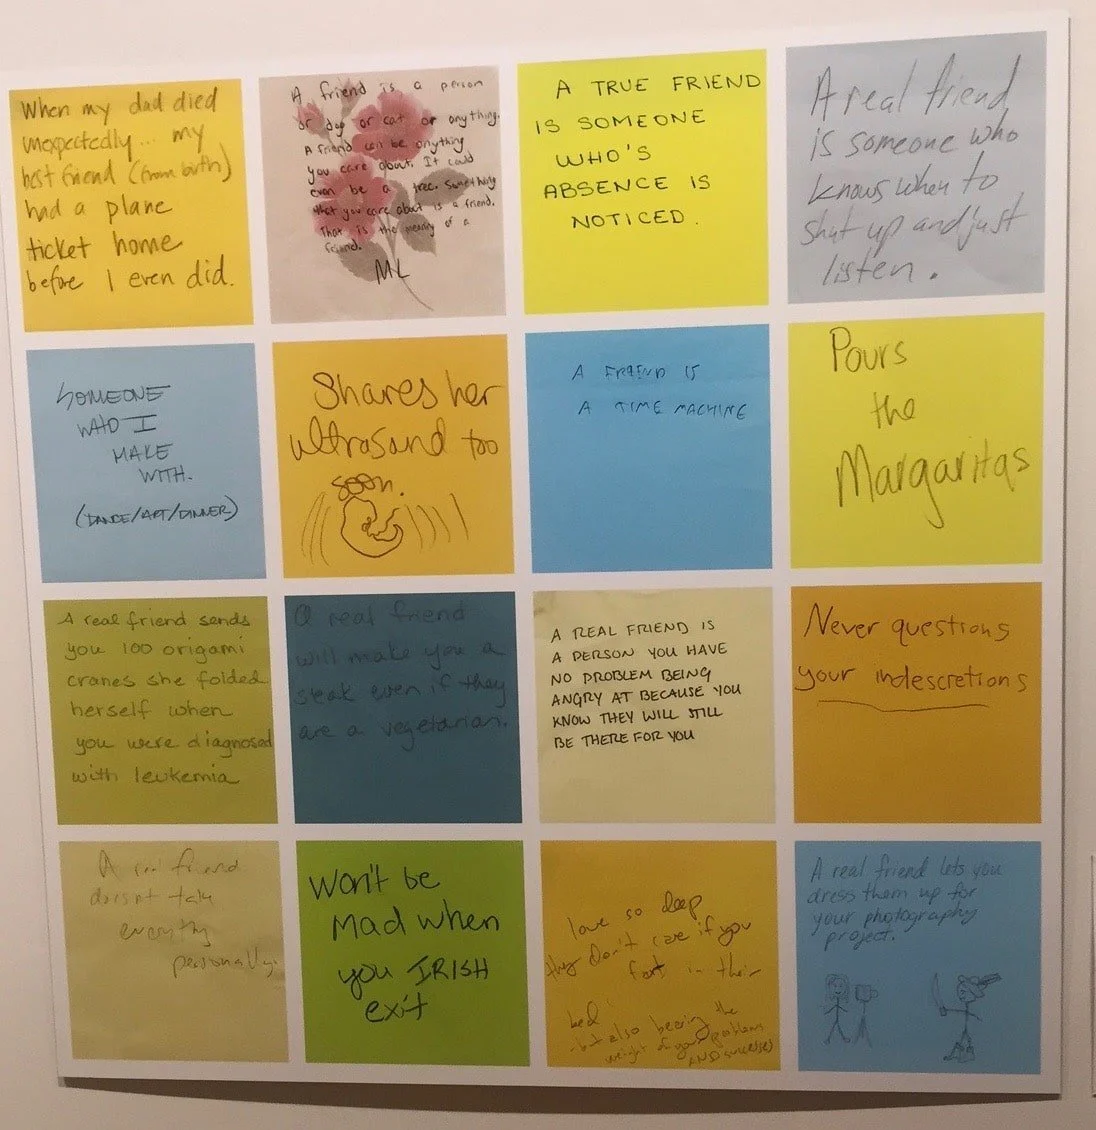 When my dad died
unexpectedly... my
best friend (from birth)
had a plane
ticket home
before I even did.
A friend is a person
or dog or cat or anything.
A friend can be anything
you care about. It could
even be a tree. Something
that you care about is a friend.
That is the meaning of a
friend.
ML
A TRUE FRIEND
IS SOMEONE
WHO'S
ABSENCE IS
NOTICED.
A real friend
is someone who
knows when to
shut up and just
listen.
SOMEONE
WHO I
MAKE
WITH.
(DANCE/ART/DINNER)
Shares her
ultrasound too
soon.
A FRIEND IS
A TIME MACHINE
Pours
the
Margaritas
A real friend sends
you 100 origami
cranes she folded
herself when
you were diagnosed
with leukemia
A real friend
will make you a
steak even if they
are a vegetarian.
A REAL FRIEND IS
A PERSON YOU HAVE
NO PROBLEM BEING
ANGRY AT BECAUSE YOU
KNOW THEY WILL STILL
BE THERE FOR YOU
Never questions
your indescretions
A real friend
doesn't take
everything
personally.
Won't be
Mad when
you IRISH
exit
love so deep
they don't care if you
fart in their
bed
-but also bearing the
weight of your problems
AND SUCCESSES
A real friend lets you
dress them up for
your photography
project.